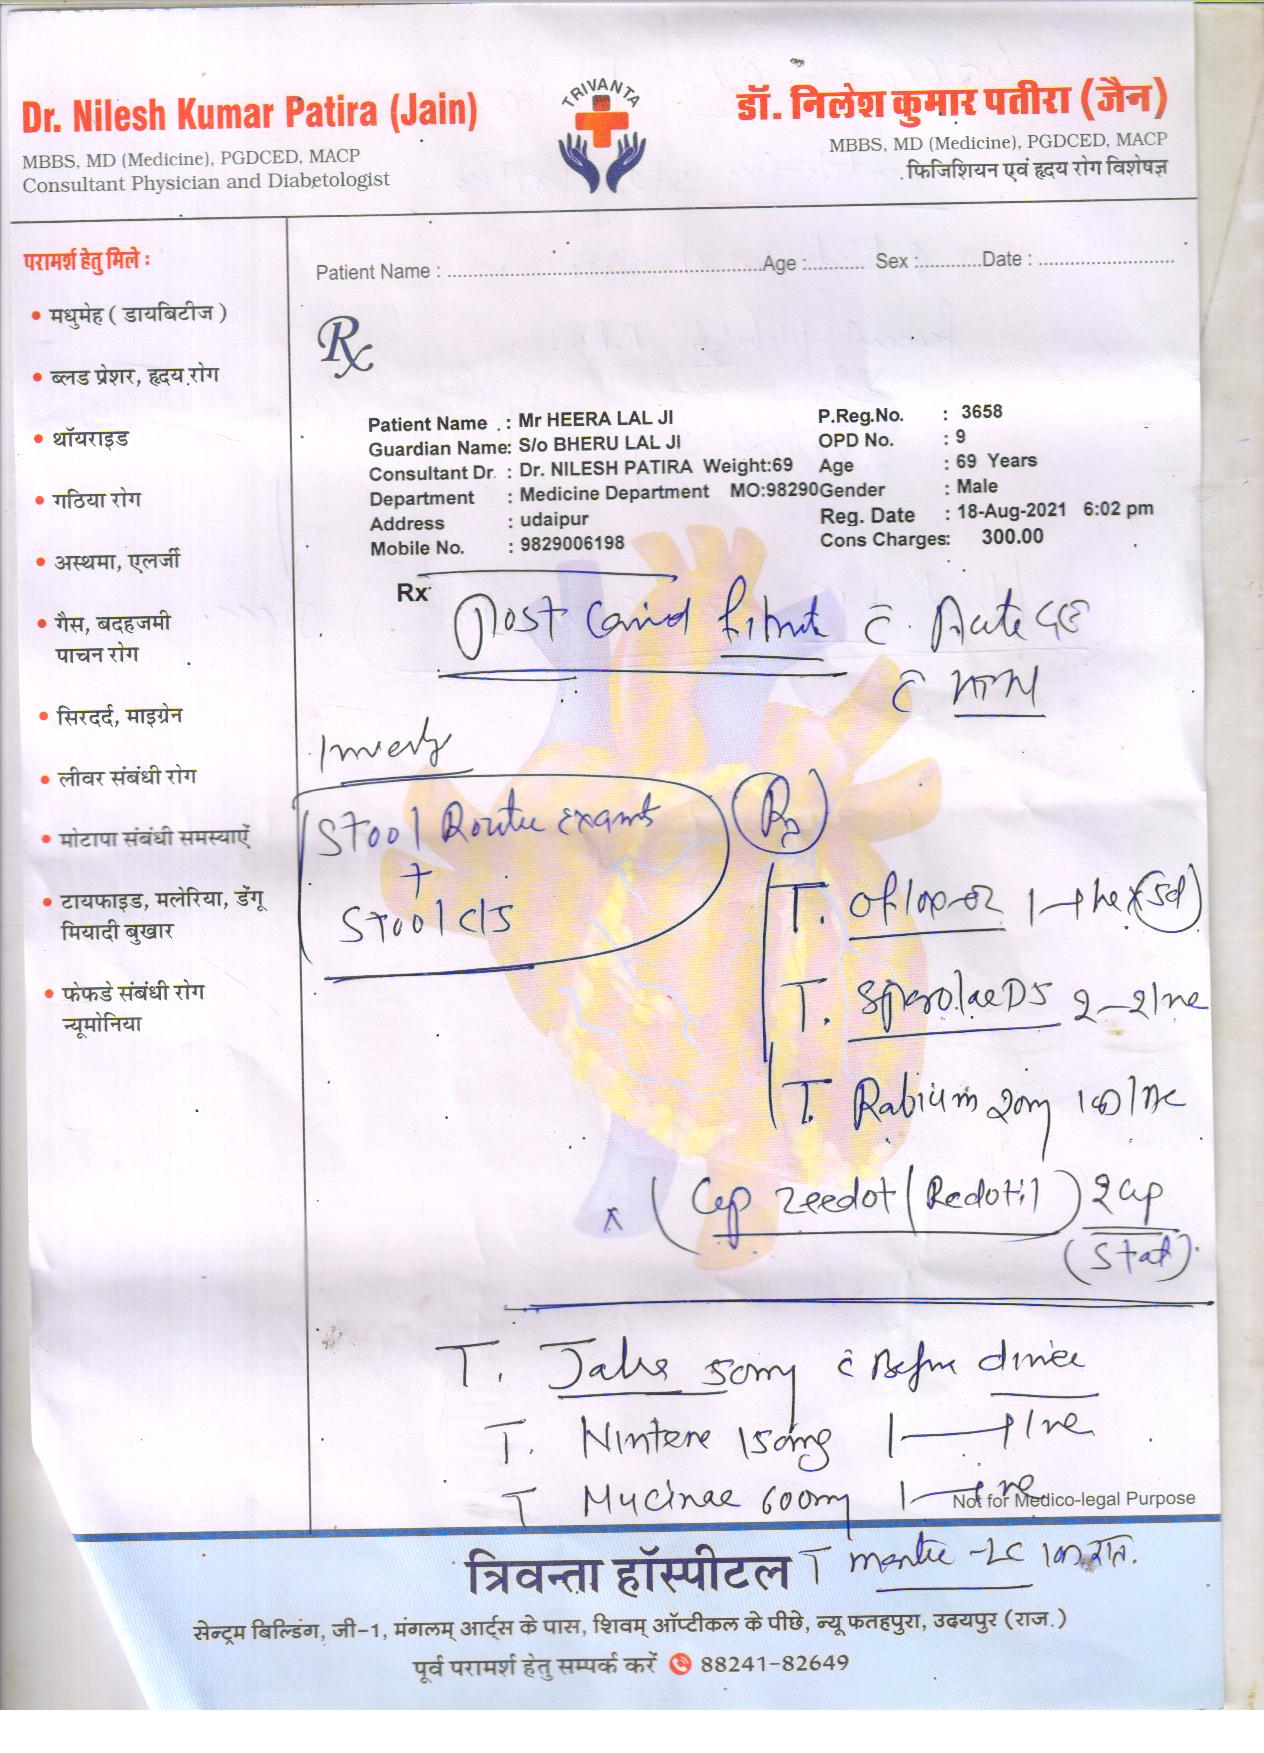 Dr. Nilesh Kumar Patira (Jain)
MBBS, MD (Medicine), PGDCED, MACP
Consultant Physician and Diabetologist
TRIVANTA
डॉ. निलेश कुमार पतीरा (जैन)
MBBS, MD (Medicine), PGDCED, MACP
फिजिशियन एवं हृदय रोग विशेषज्ञ
परामर्श हेतु मिले :
• मधुमेह ( डायबिटीज )
• ब्लड प्रेशर, हृदय रोग
• थॉयराइड
• गठिया रोग
• अस्थमा, एलर्जी
• गैस, बदहजमी
पाचन रोग
• सिरदर्द, माइग्रेन
• लीवर संबंधी रोग
• मोटापा संबंधी समस्याऐं
• टायफाइड, मलेरिया, डेंगू
मियादी बुखार
• फेफडे संबंधी रोग
न्यूमोनिया
Patient Name : ........ Age :........ Sex :........ Date : ........
Rx
Patient Name : Mr HEERA LAL JI P.Reg.No. : 3658
Guardian Name: S/o BHERU LAL JI OPD No. : 9
Consultant Dr. : Dr. NILESH PATIRA Weight:69 Age : 69 Years
Department : Medicine Department MO:98290 Gender : Male
Address : udaipur Reg. Date : 18-Aug-2021 6:02 pm
Mobile No. : 9829006198 Cons Charges: 300.00
Rx
Post Covid c̄ Acute GE
c̄ HTN
Stool Routine
+
Stool C/S
Rx
T. Oflox-oz 1-1 (5d)
T.
T. Rabium 20mg
Cap Zeedot (Redotil) 2 cap
(Stat)
T. 50mg c̄ Before dinner
T. 150mg 1
T 600mg 1
Not for Medico-legal Purpose
T -LC रात.
त्रिवन्ता हॉस्पीटल
सेन्ट्रम बिल्डिंग, जी-1, मंगलम् आर्ट्स के पास, शिवम् ऑप्टीकल के पीछे, न्यू फतहपुरा, उदयपुर (राज.)
पूर्व परामर्श हेतु सम्पर्क करें 88241-82649